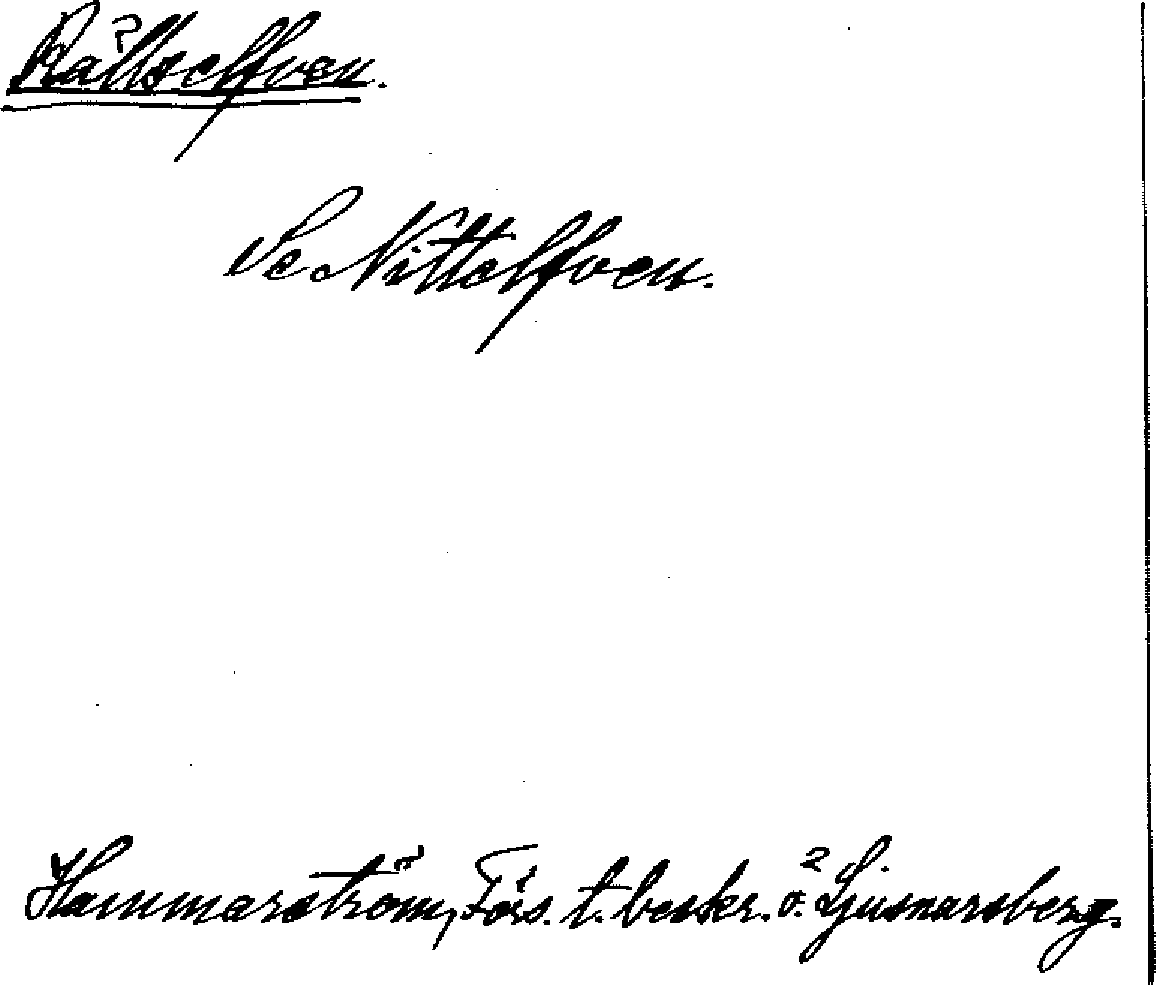 Rållselfven.
Se Nittelfven.
Hammarström, Förs. t. beskr. ö. Ljusnarsberg.